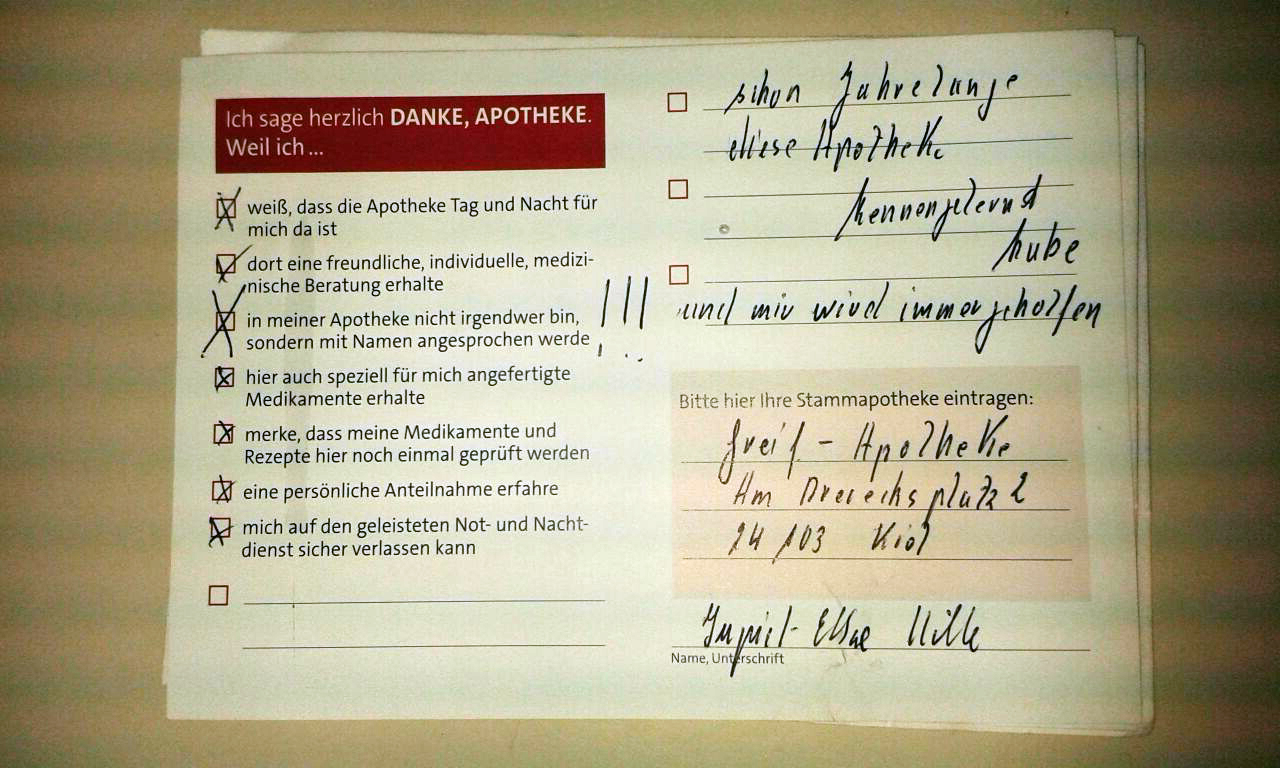 Ich sage herzlich DANKE, APOTHEKE.
Weil ich ...
weiß, dass die Apotheke Tag und Nacht für
mich da ist
dort eine freundliche, individuelle, medizi-
nische Beratung erhalte
in meiner Apotheke nicht irgendwer bin,
sondern mit Namen angesprochen werde
!!!
hier auch speziell für mich angefertigte
Medikamente erhalte
merke, dass meine Medikamente und
Rezepte hier noch einmal geprüft werden
eine persönliche Anteilnahme erfahre
mich auf den geleisteten Not- und Nacht-
dienst sicher verlassen kann
schon Jahrelange
diese Apotheke
kennengelernd
habe
und mir wird immer geholfen
Bitte hier Ihre Stammapotheke eintragen:
Greif - Apotheke
Am Dreiecksplatz 2
24 103 Kiel
Name, Unterschrift